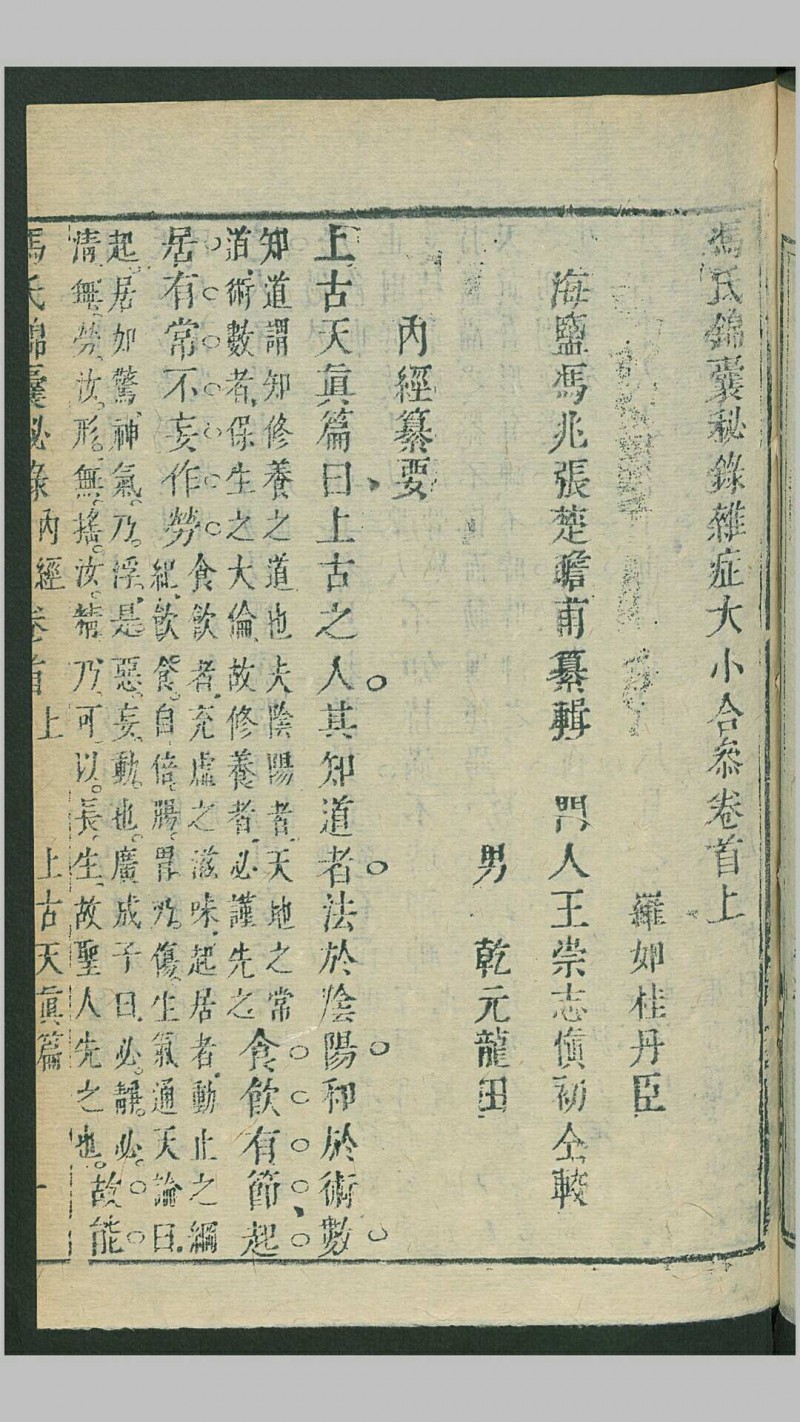 馮氏錦囊秘錄雜症大小合參卷首上
羅如桂丹臣
海鹽馮兆張楚瞻甫纂輯 門人王崇志慎初仝較
男 乾元龍田
內經纂要
上古天眞篇曰上古之人其知道者法於陰陽和於術數
知道謂知修養之道也夫陰陽者天地之常
道術數者保生之大倫故修養者必謹先之
食飲有節起
居有常不妄作勞
食飲者充虛之滋味起居者動止之綱
紀飲食自倍腸胃乃傷生氣通天論曰
起居如驚神氣乃浮是惡妄動也廣成子曰必靜必
清無勞汝形無搖汝精乃可以長生故聖人先之也
故能
馮氏錦囊秘錄 內經卷首上 上古天眞篇 一